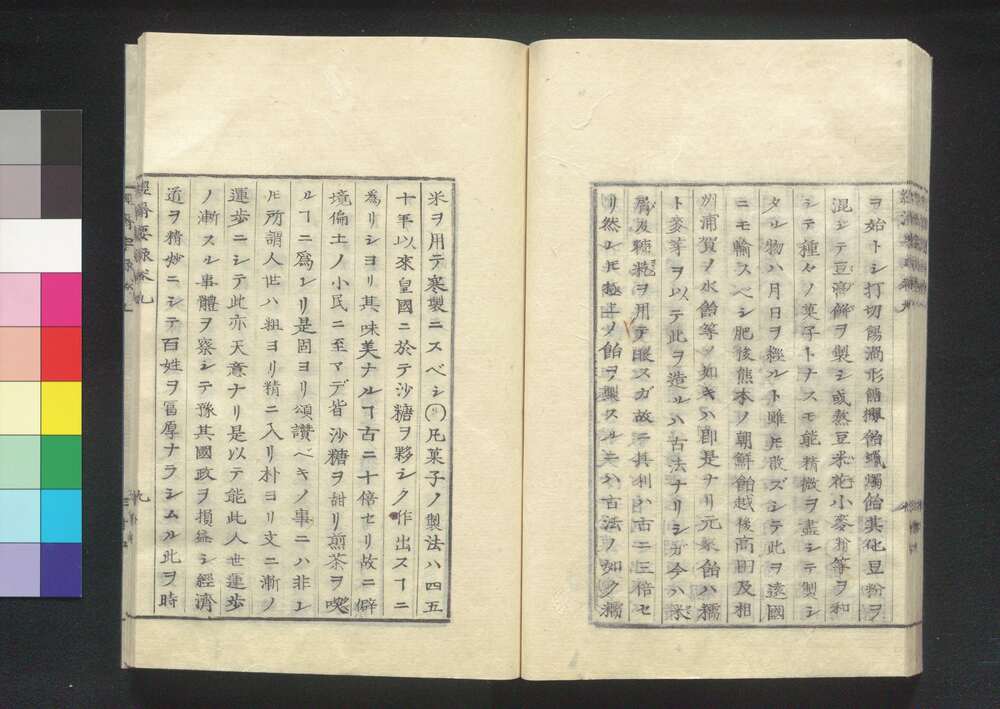 ヲ始トシ打切飴渦形飴櫻飴蠟燭飴其他豆粉ヲ
混シテ豆
餅ヲ製シ或熬豆米花小麥
等ヲ和
シテ種々ノ菓子トナスモ能精微ヲ盡シテ製シ
タル物ハ月日ヲ經ルト雖𪜈敗ズシテ此ヲ遠國
ニモ輸スベシ肥後熊本ノ朝鮮飴越後高田及相
州浦賀ノ水飴等ノ如キハ即是ナリ元來飴ハ糯
ト麥芽ヲ以テ此ヲ造ルハ古法ナリシガ今ハ米
屑及糖粃ヲ用テ
スガ故ニ其利ハ古ニ三倍セ
リ然レ𪜈極上ノ飴ヲ製スルニハ古法ノ如ク糯
米ヲ用テ寒製ニスベシ
凡菓子ノ製法ハ四五
十年以來皇國ニ於テ沙糖ヲ夥シク作出スヿニ
爲リシヨリ其味美ナルヿ古ニ十倍セリ故ニ僻
境偏土ノ小民ニ至マデ皆沙糖ヲ甜リ煎茶ヲ喫
ルヿニ爲レリ是固ヨリ頌讃ベキノ事ニハ非レ
𪜈所謂人世ハ粗ヨリ精ニ入リ朴ヨリ文ニ漸ノ
運歩ニシテ此亦天意ナリ是以テ能此人世運歩
ノ漸スル事體ヲ察シテ豫其國政ヲ損益シ經濟
道ヲ精妙ニシテ百姓ヲ富厚ナラシムル此ヲ時
經濟要録卷九